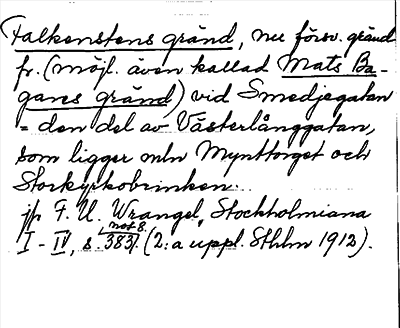 Falkenstens gränd, nu försv. gränd
fr. (möjl. även kallad Mats Ba-
gares gränd) vid Smedjegatan
= den del av Västerlånggatan,
som ligger mln Mynttorget och
Storkyrkobrinken.
jfr F. U. Wrangel, Stockholmiana
I - IV, s. 383, not 8. (2:a uppl. Sthlm 1912).